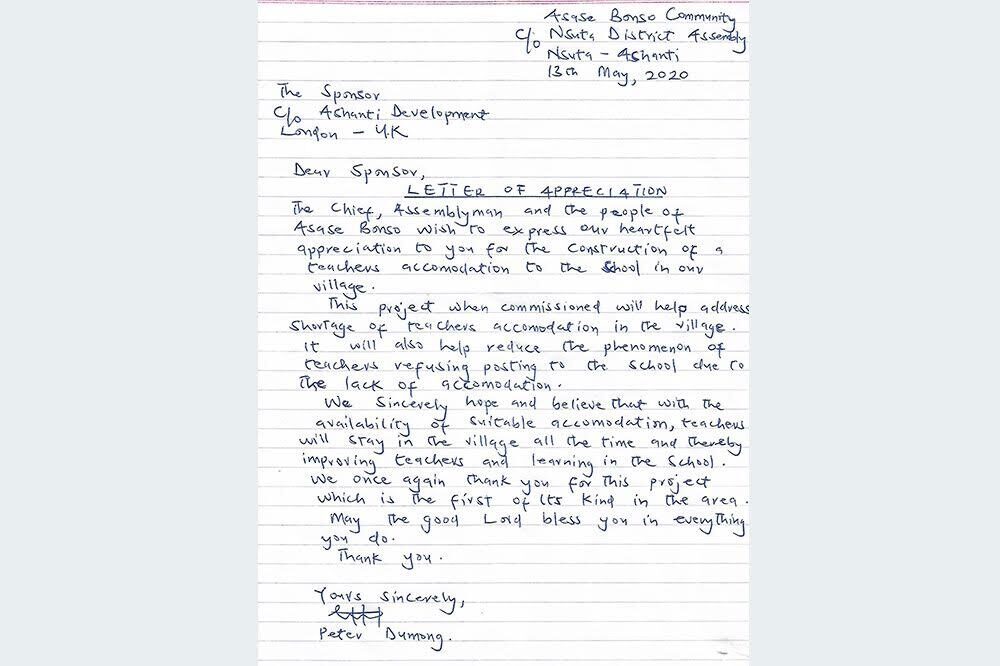 Asase Bonso Community
c/o Nsuta District Assembly
Nsuta - Ashanti
13th May, 2020
The Sponsor
c/o Ashanti Development
London - U.K
Dear Sponsor,
LETTER OF APPRECIATION
The Chief, Assemblyman and the people of
Asase Bonso wish to express our heartfelt
appreciation to you for the construction of a
teachers accomodation to the school in our
village.
This project when commissioned will help address
shortage of teachers accomodation in the village.
It will also help reduce the phenomenon of
teachers refusing posting to the school due to
the lack of accomodation.
We sincerely hope and believe that with the
availability of suitable accomodation, teachers
will stay in the village all the time and thereby
improving teachers and learning in the school.
We once again thank you for this project
which is the first of its kind in the area.
May the good Lord bless you in everything
you do.
Thank you.
Yours sincerely,
Peter Dumong.